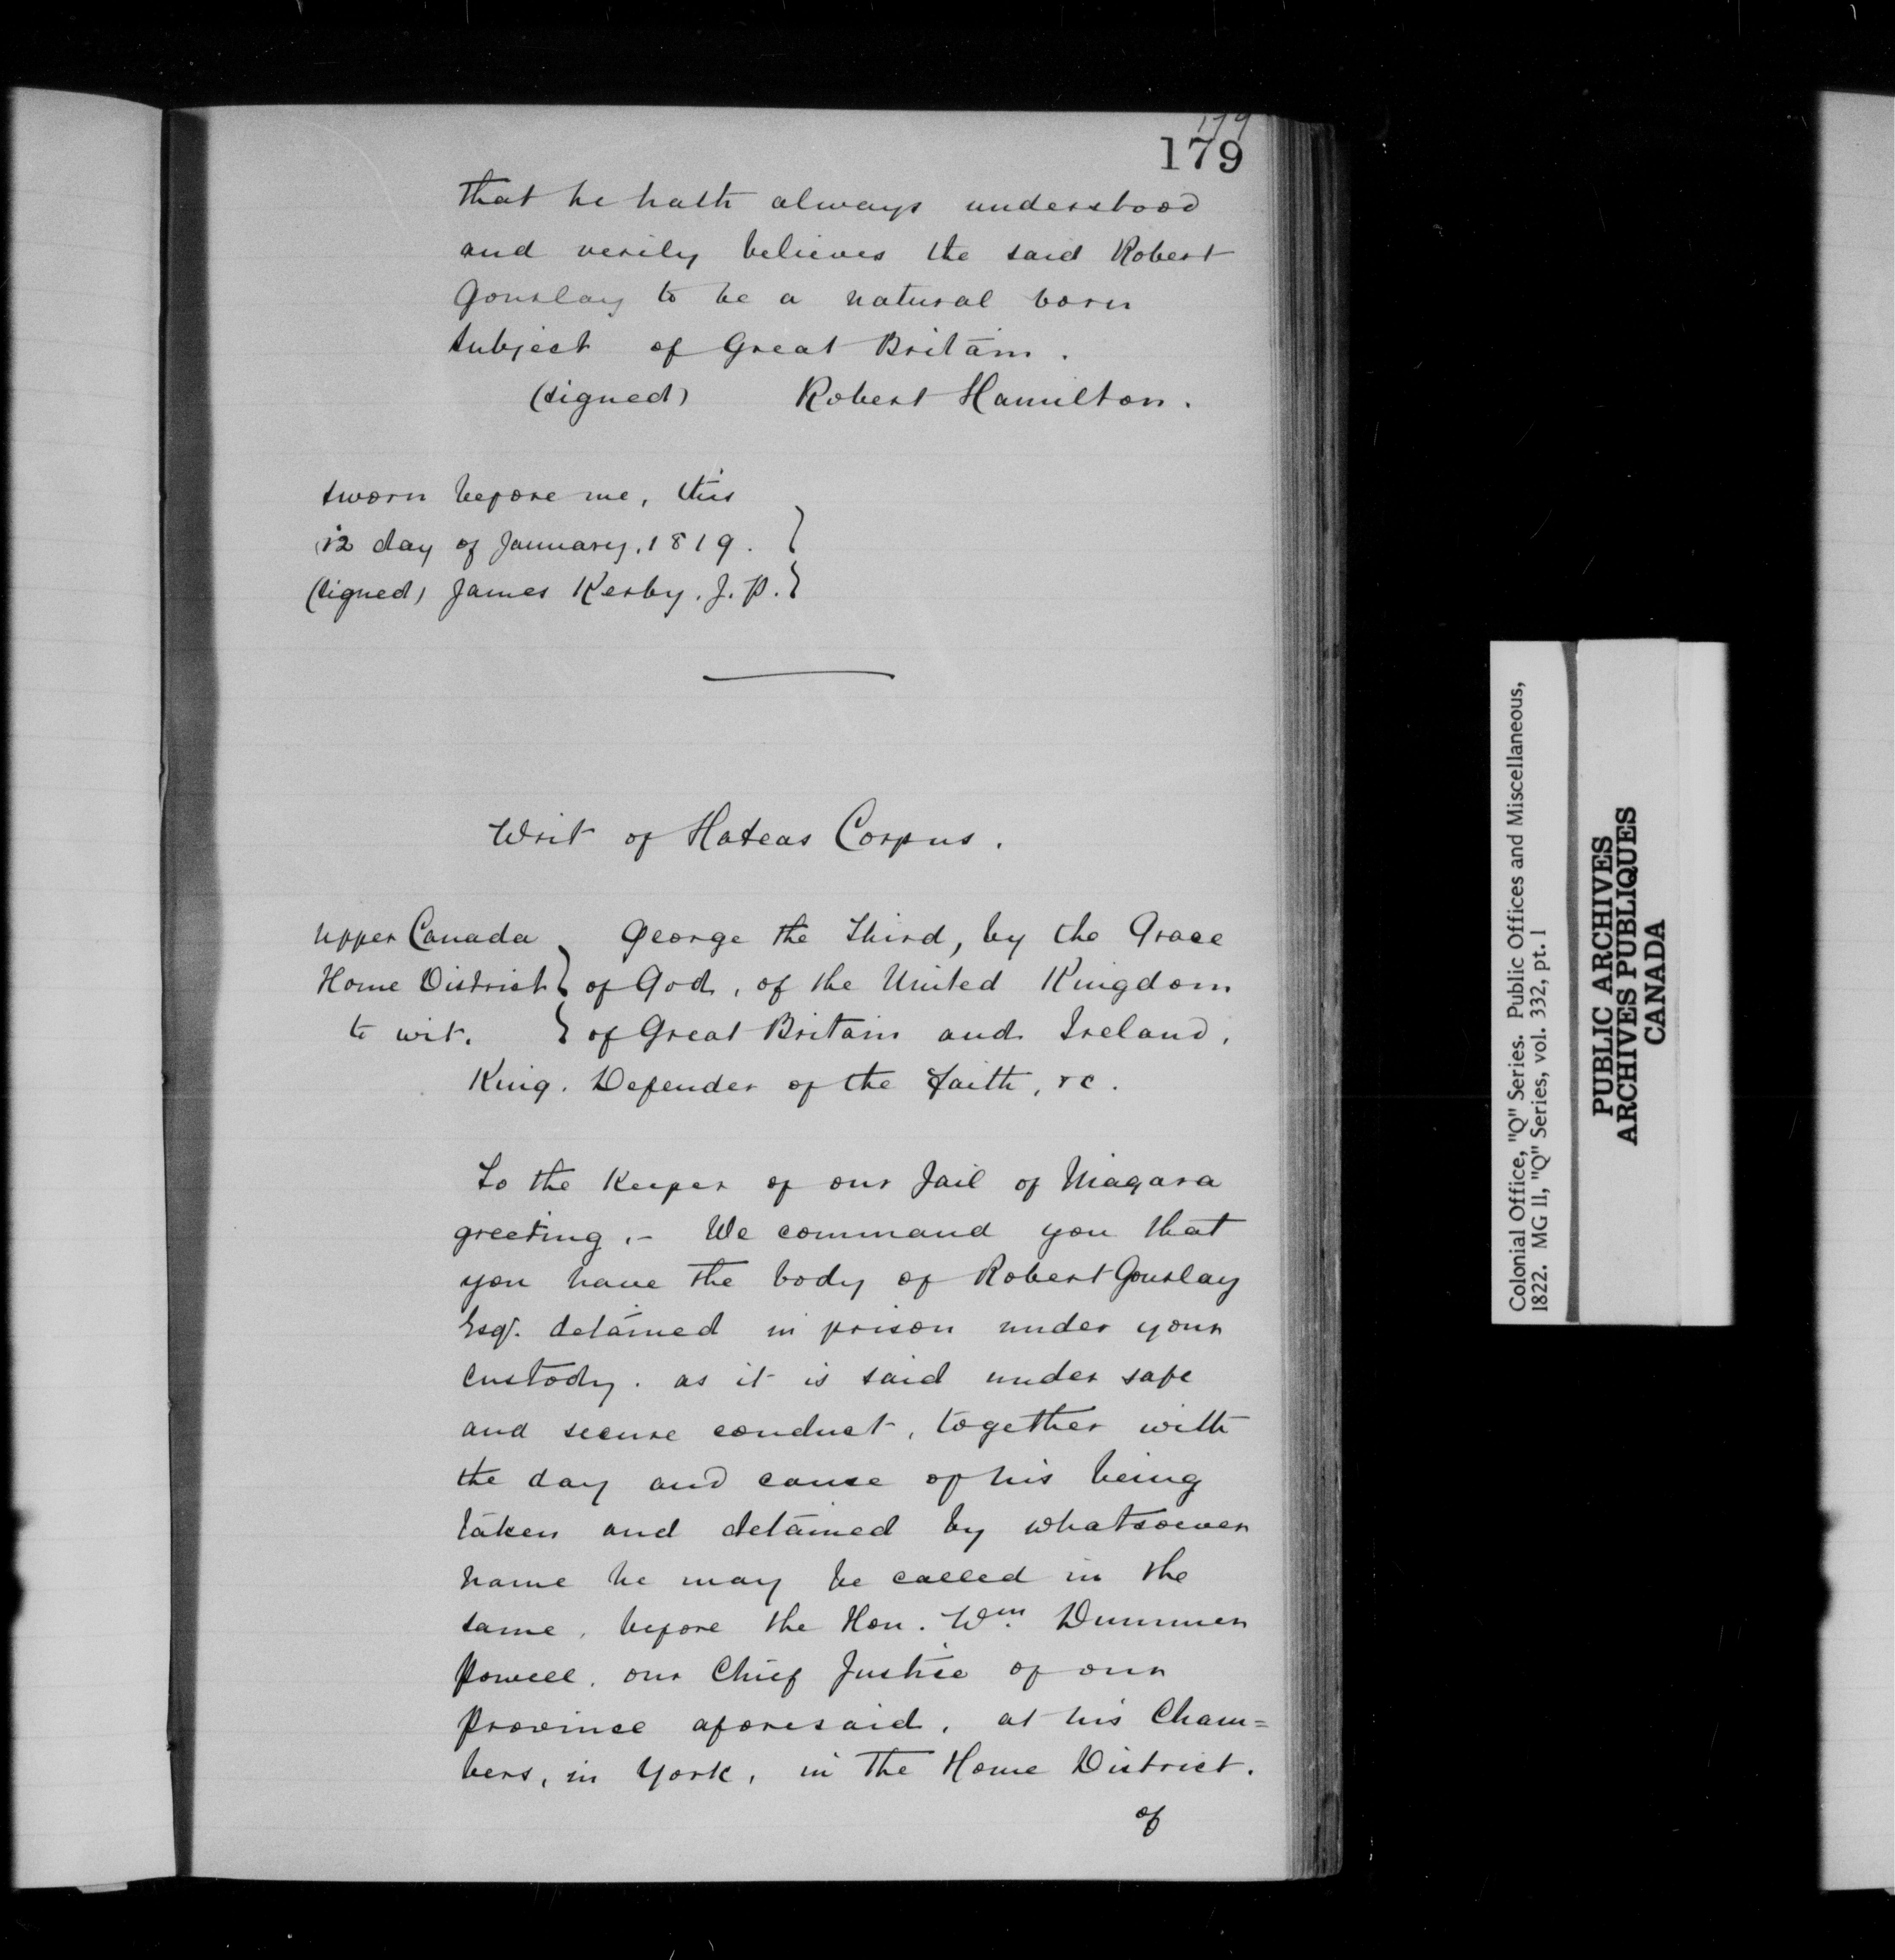 179
179
that he hath always understood
and verily believes the said Robert
Gourlay to be a natural born
subject of Great Britain.
(signed) Robert Hamilton.
sworn before me, this
12 day of January, 1819.
(signed) James Kerby. J. P.
Writ of Habeas Corpus.
Upper Canada } George the Third, by the Grace
Home District } of God, of the United Kingdom
to wit. } of Great Britain and Ireland,
King. Defender of the Faith, &c.
To the Keeper of our Jail of Niagara
greeting.- We command you that
you have the body of Robert Gourlay
Esqr. detained in prison under your
custody. as it is said under safe
and secure conduct, together with
the day and cause of his being
taken and detained by whatsoever
name he may be called in the
same, before the Hon. Wm. Dummer
Powell, our Chief Justice of our
Province aforesaid, at his Cham=
bers, in York, in the Home District.
of
Colonial Office, "Q" Series. Public Offices and Miscellaneous,
1822. MG 11, "Q" Series, vol. 332, pt. 1
PUBLIC ARCHIVES
ARCHIVES PUBLIQUES
CANADA